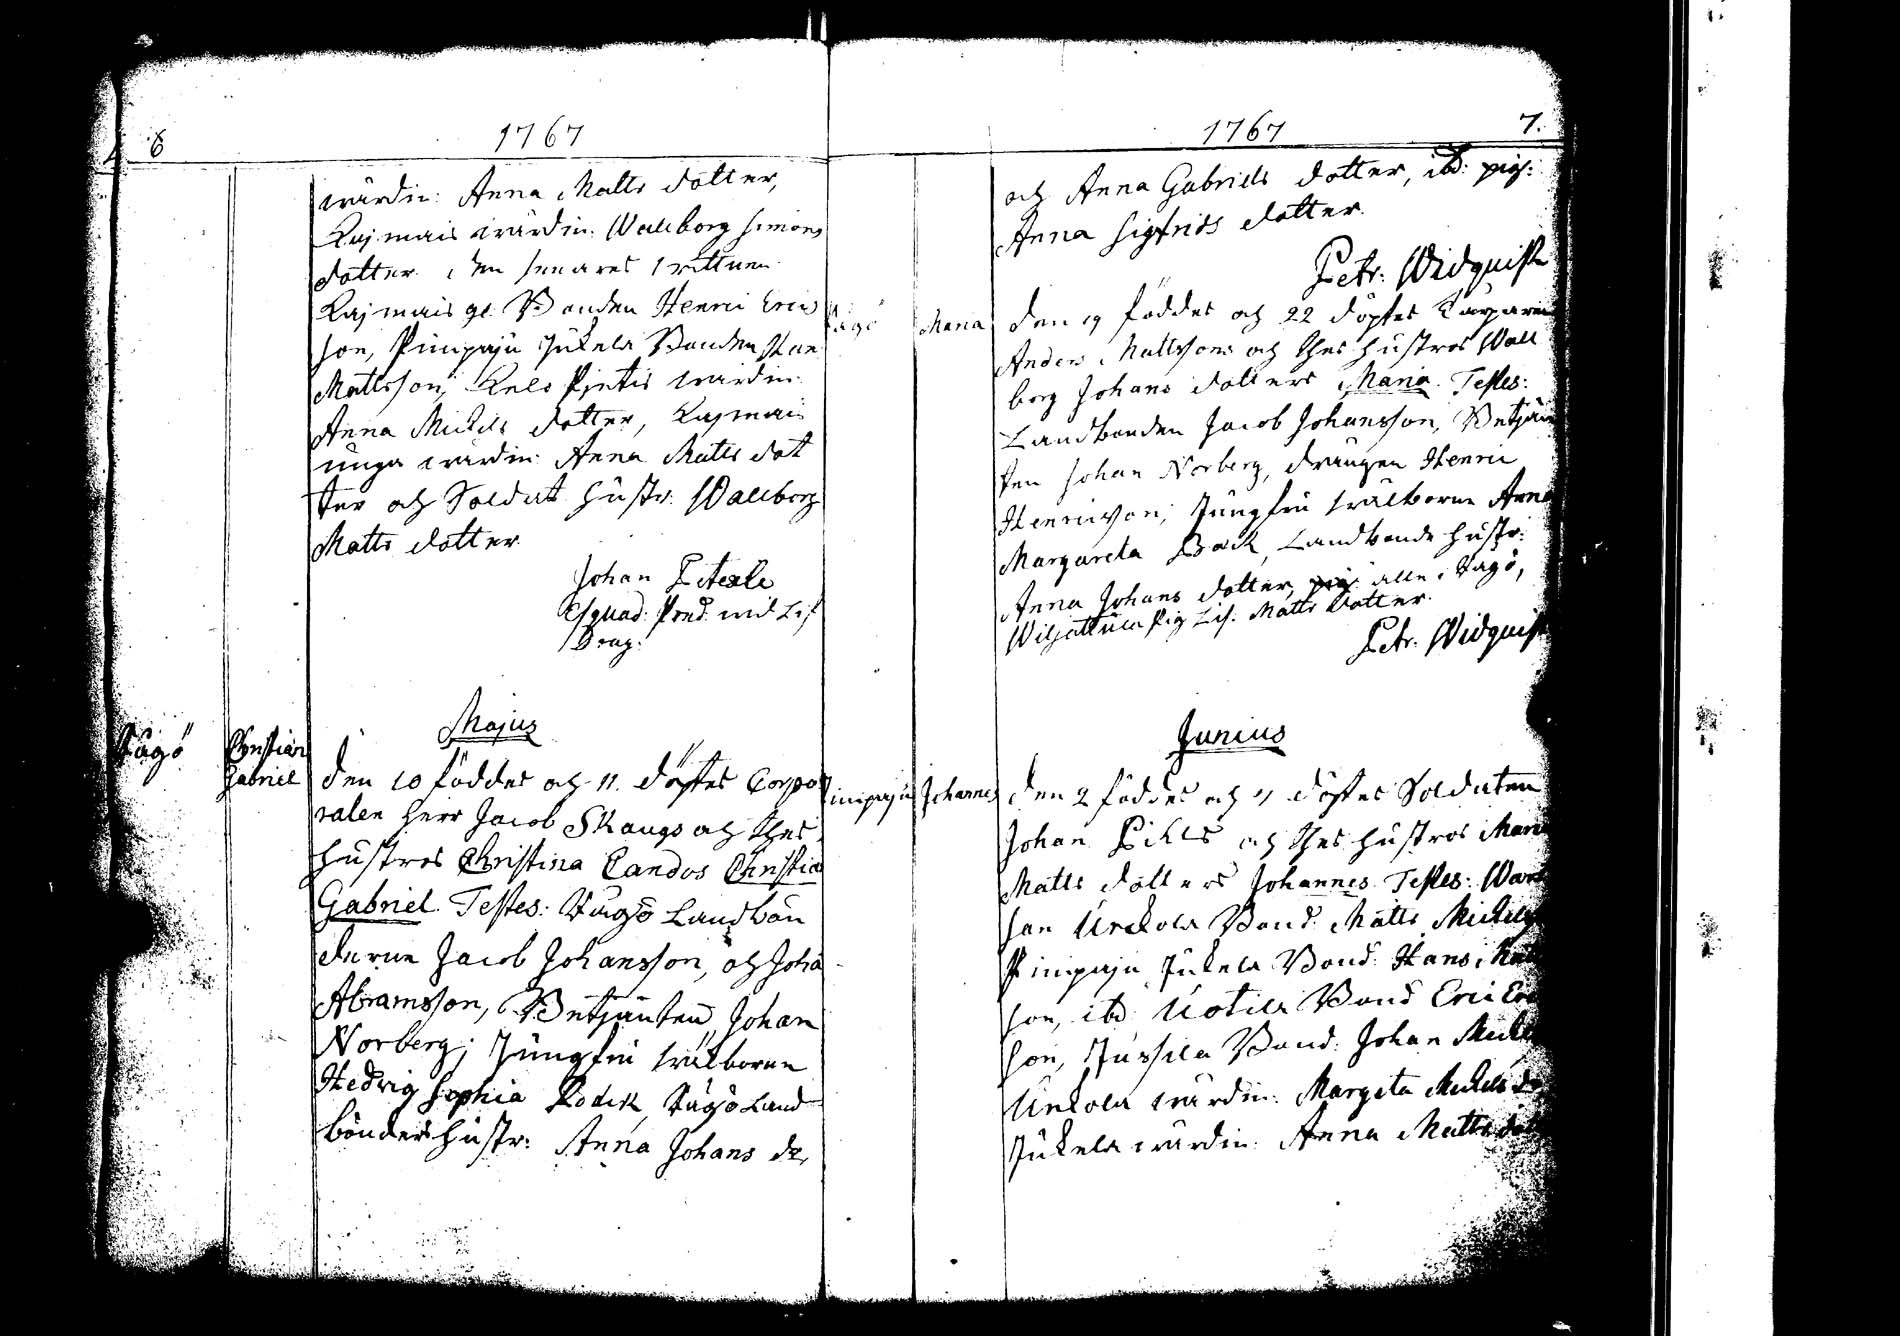 6
1767
wärdin: Anna Matts dotter,
Kajmais wärdin: Wallborg Simons
dotter. den senares vittnen
Kajmais gl. Bonden Henric Erics
son, Pimpaju Jukela Bonden Han
Mattsson, wärdin:
Anna Michels dotter, Kajmais
unga wärdin: Anna Matts dot
ter och Soldat hustr: Wallborg
Matts dotter.
Johan
Esquad: Pred. vid Lif
Drag:
Majus
Wågö
Christian
Gabriel
den 10 föddes och 11. döptes Corpo
ralen Herr Jacob Skaugs och thes
hustros Christina Candos Christia
Gabriel. Testes: Wågö Landbön
derne Jacob Johansson, och Joha
Abramsson, Betjänten, Johan
Norberg; Jungfru wälborne
Hedvig Sophia Wågö Land
bönders hustr: Anna Johans dr,
1767
7.
och Anna Gabriels dotter, ibd: pig:
Anna Sigfrids dotter.
Petr: Widquist
Wågö
Maria
den 19 föddes och 22 döptes
Anders Mattssons och thes hustros Wall
borg Johans dotters Maria. Testes:
Landbonden Jacob Johansson, Betjän
ten Johan Norberg, drängen Henric
Henricsson; Jungfru wälborne Anna
Margareta Bock, Landbonde hustr:
Anna Johans dotter, alle i Wågö,
Pig Lis: Matts dotter.
Petr: Widquist
Junius
Pimpaju
Johannes
den 2 föddes och 4 döptes Soldaten
Johan och thes hustros Maria
Matts dotters Johannes. Testes:
Urckola Bond: Matts Michels
Pimpaju Jukela Bond: Hans Matts
son, ibd: Uotila Bond Eric Eric
son, Jussila Bond: Johan Michels
Urckola wärdin: Margeta Michels do
Jukela wärdin: Anna Matts dott